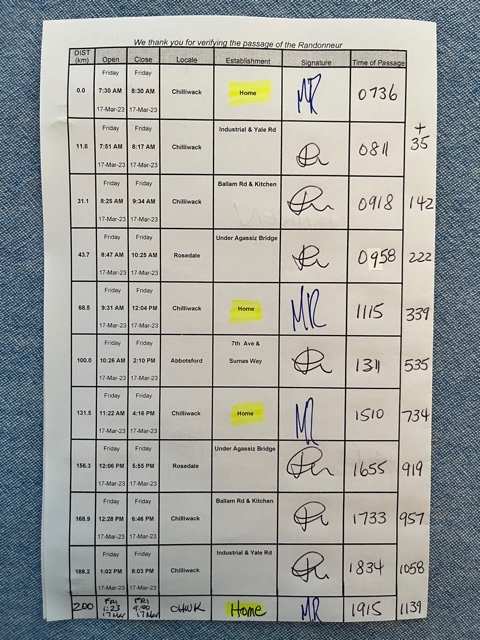 We thank you for verifying the passage of the Randonneur
DIST (km) Open Close Locale Establishment Signature Time of Passage
Friday Friday
0.0 7:30 AM 8:30 AM Chilliwack Home MR 0736
17-Mar-23 17-Mar-23
+
Friday Friday Industrial & Yale Rd
11.8 7:51 AM 8:17 AM Chilliwack 0811 35
17-Mar-23 17-Mar-23
Friday Friday Ballam Rd & Kitchen
31.1 8:25 AM 9:34 AM Chilliwack 0918 142
17-Mar-23 17-Mar-23
Friday Friday Under Agassiz Bridge
43.7 8:47 AM 10:25 AM Rosedale 0958 222
17-Mar-23 17-Mar-23
Friday Friday
68.5 9:31 AM 12:04 PM Chilliwack Home MR 1115 339
17-Mar-23 17-Mar-23
Friday Friday 7th Ave &
100.0 10:26 AM 2:10 PM Abbotsford Sumas Way 1311 535
17-Mar-23 17-Mar-23
Friday Friday
131.5 11:22 AM 4:16 PM Chilliwack Home MR 1510 734
17-Mar-23 17-Mar-23
Friday Friday Under Agassiz Bridge
156.3 12:06 PM 5:55 PM Rosedale 1655 919
17-Mar-23 17-Mar-23
Friday Friday Ballam Rd & Kitchen
168.9 12:28 PM 6:46 PM Chilliwack 1733 957
17-Mar-23 17-Mar-23
Friday Friday Industrial & Yale Rd
188.2 1:02 PM 8:03 PM Chilliwack 1834 1058
17-Mar-23 17-Mar-23
FRI FRI
200 1:23 9:00 CHWK Home MR 1915 1139
17 Mar 17 Mar